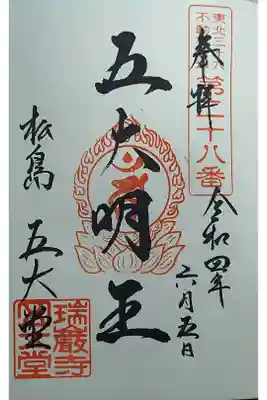 奉拝
東北三十六
不動尊
第二十八番
令和四年
六月五日
五大明王
松島 五大堂
瑞巌寺
五大堂